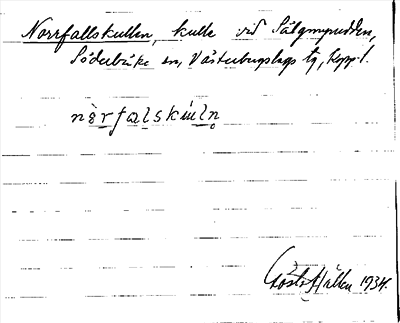 Norrfallskullen, kulle vid Sälgmyrudden,
Söderbärke sn, Västerbergslags tg, Kopp. l.
nὲrfalskuln̥
Gösta Hällen 1934.